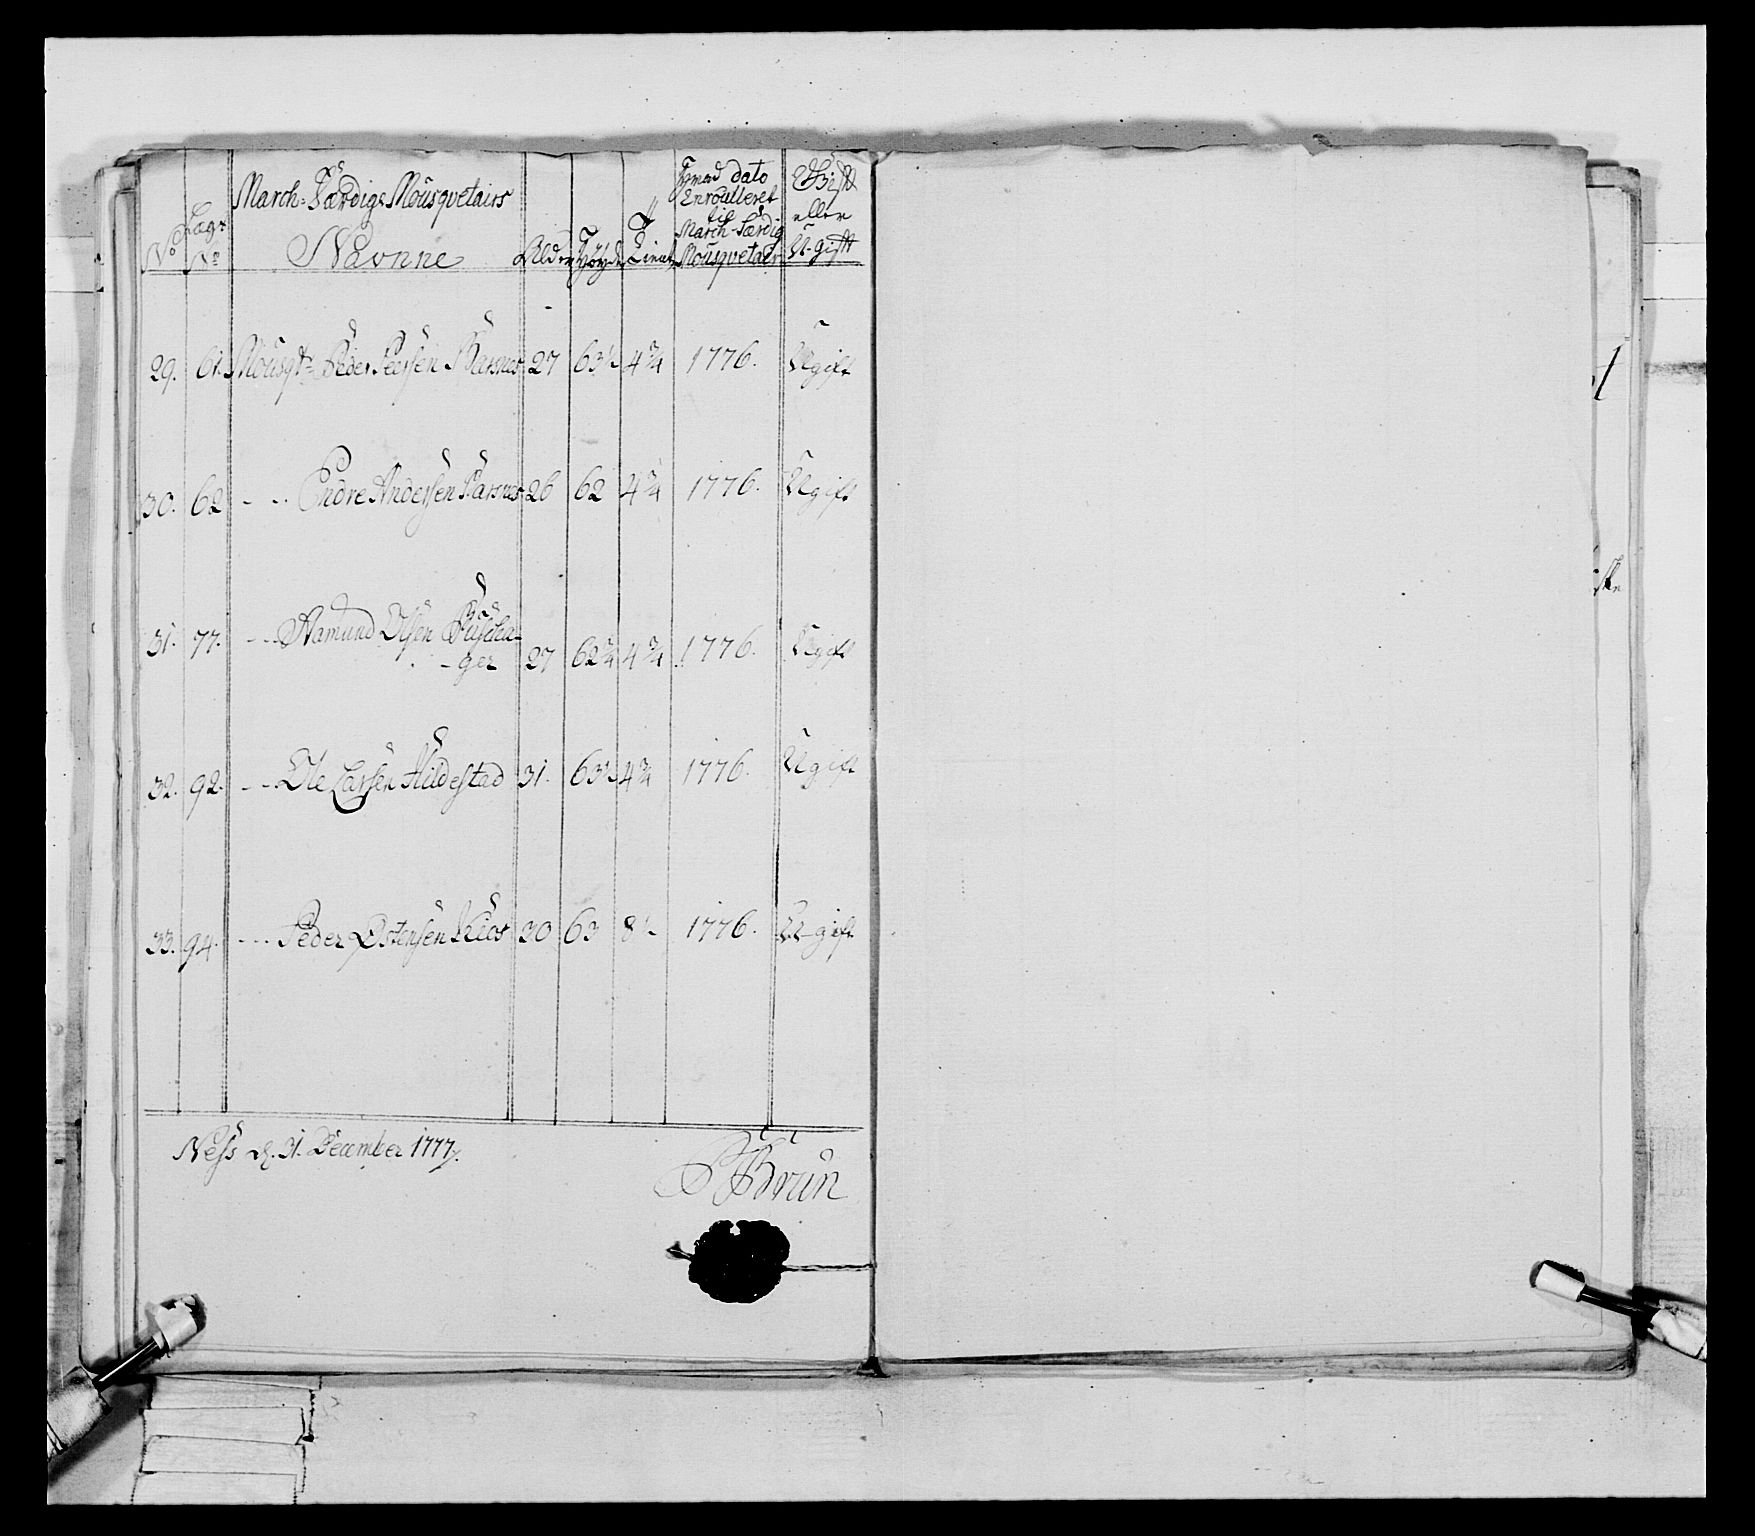 March-Færdige Mousqvetairs
Navnne
No
Lægs No
Alder
Høyde
T
Lieut
Hvad dato
Enroulleret
til
March-Færdig
Mousqvetair
Gift
eller
U-gift
29. 61. Mousqt: Peder Peersen 27 63½ 4¾ 1776. Ugift
30. 62 - - Endre Andersen 26 62 4¾ 1776. Ugift
31. 77. - - Aamund Olsen
- ger 27 62¾ 4¾ 1776. Ugift
32. 92. - - Ole Larsen Hildestad 31. 63½ 4¾ 1776. Ugift
33. 94. - - - Peder Østensen 30 63 8½ 1776. U-gift
Ness d. 31. December 1777.
Brun